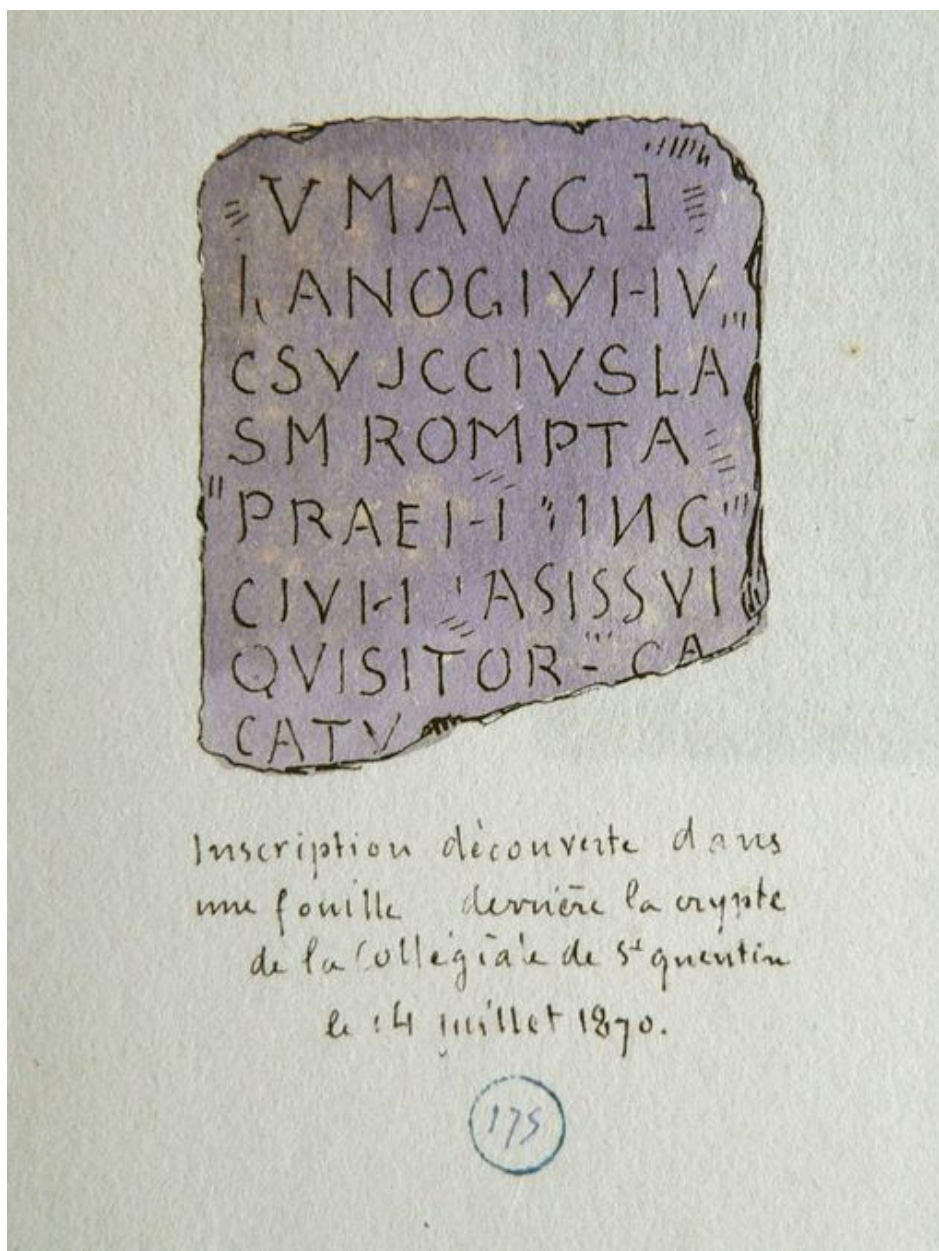 VMAVGI
ANOGIVHV
CSVJCCIVSLA
SM ROMPTA
PRAEI-I ING
CIVI-I ASISSVI
QVISITOR - CA
CATV
Inscription découverte dans
une fouille derrière la crypte
de la Collégiale de St quentin
le 14 juillet 1870.
175